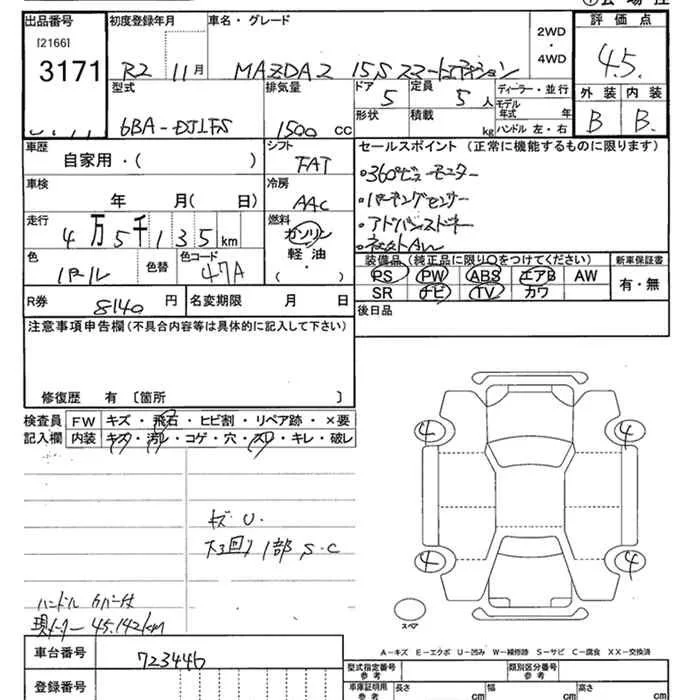 出品番号 初度登録年月 車名・グレード 2WD・4WD 評価点
[2166] R2 11月 MAZDA2 15S スマートエディション 4.5
3171 外装 内装
型式 排気量 ドア 定員 ディーラー・並行 B B
6BA-DJLFS 1500 cc 5 5人 モデル年式 年
形状 積載 kg ハンドル 左・右
車歴 シフト セールスポイント (正常に機能するものに限ります)
自家用・( ) FAT ・360°ビューモニター
車検 冷房 ・パーキングセンサー
年 月( 日) AAC
走行 燃料
4万5千135km ガソリン
軽油
( ・ )
色 色替 色コード 装備品(純正品に限り○をつけてください) 新車保証書
パール 47A PS PW ABS エアB AW 有・無
SR ナビ TV カワ
R券 8140 円 名変期限 月 日 後日品
注意事項申告欄(不具合内容等は具体的に記入して下さい)
修復歴 有 〔箇所 〕
検査員 FW キズ・飛石・ヒビ割・リペア跡・×要
記入欄 内装 キズ・汚れ・コゲ・穴・スレ・キレ・破レ
キズ U.
下回り 1部 S.C
ハンドルカバー付
現メーター 45.142km
4 4
4 4
スペア
A-キズ E-エクボ U-凹み W-補修跡 S-サビ C-腐食 XX-交換済
車台番号 723446
登録番号
型式指定番号 参考 類別区分番号 参考
車庫証明用 参考 長さ cm 幅 cm 高さ cm